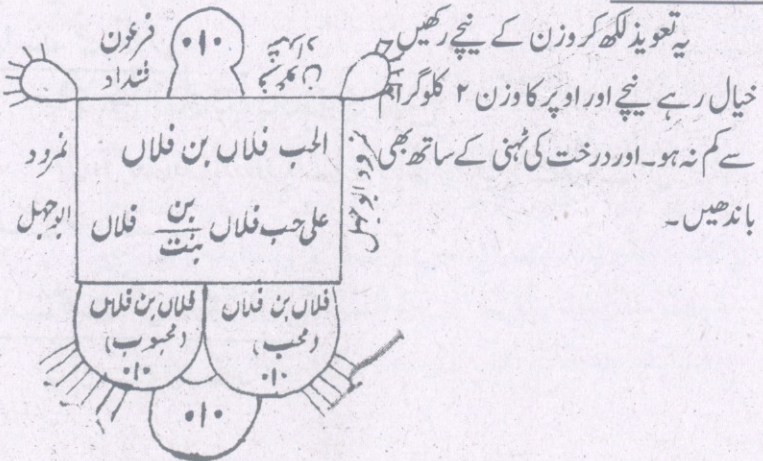 یہ تعویذ لکھ کر وزن کے نیچے رکھیں۔
خیال رہے نیچے اور اوپر کا وزن ۲ کلوگرام
سے کم نہ ہو۔ اور درخت کی ٹہنی کے ساتھ بھی
باندھیں۔
۰۱۰
فرعون
شداد
فرعون
شداد
الحب فلاں بن فلاں
علی حب فلاں بن / بنت فلاں
نمرود
ابوجہل
نمرود ابوجہل
فلاں بن فلاں
(محب)
۰۱۰
فلاں بن فلاں
(محبوب)
۰۱۰
۰۱۰